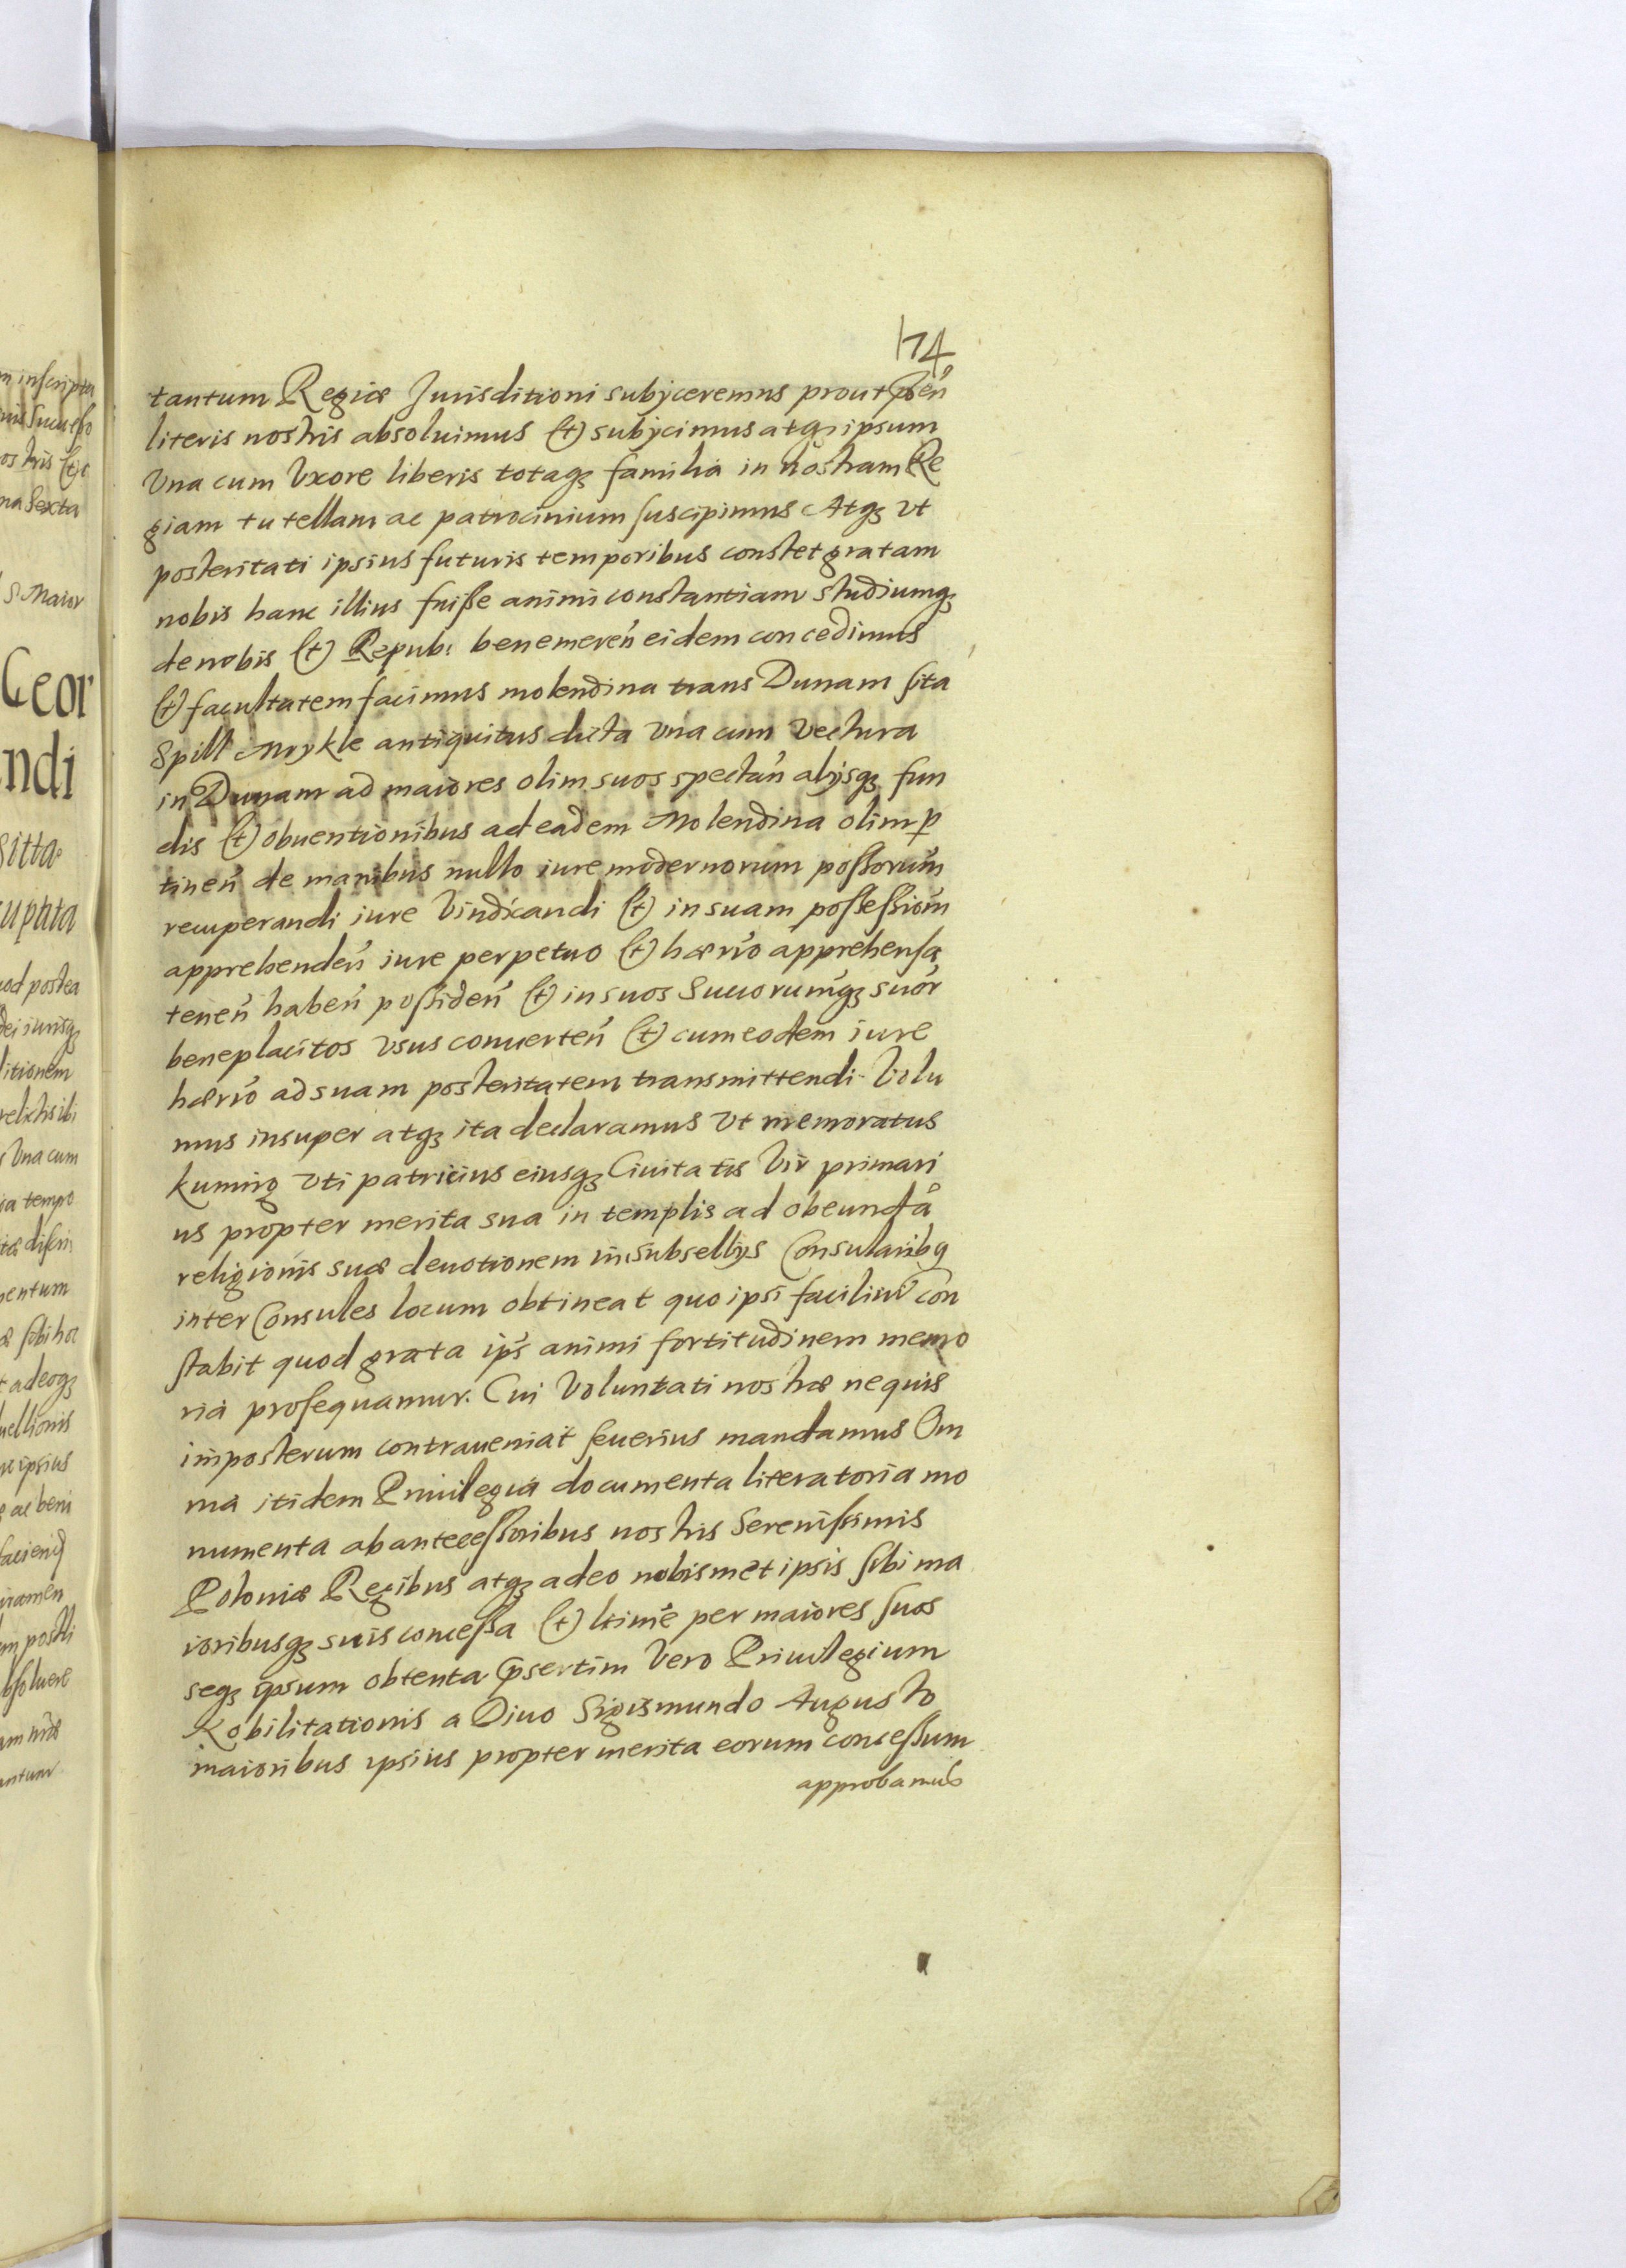 174
tantum Regiæ Jurisditioni subÿceremus prout p̄sen̄
literis nostris absoluimus (t) subÿcimus atqꝫ ipsum
Vna cum Vxore liberis totaqꝫ familia in nostram Re
giam tutellam ac patrocinium suscipimus Atqꝫ vt
posteritati ipsius futuris temporibus constet gratam
nobis hanc illius fuiße animi constantiam studiumqꝫ
de nobis (t) Repub: bene meren̄ eidem concedimus
(t) facultatem facimus molendina trans Dunam sita
Spill Mykle antiquitus dicta vna cum vectura
in Dunam ad maiores olim suos spectan̄ alÿsqꝫ fun
dis (t) obuentionibus ad eadem Molendina olim ꝑ
tinen̄ de manibus nullo iure modernorum possorum̄
recuperandi iure Vindicandi (t) in suam possessiom̄
apprehenden̄ iure perpetuo (t) hærio̅ apprehensa
tenen̄ haben̄ possiden̄ (t) in suos Sucorumq̄ꝫ suor̄
beneplacitos vsus conuerten̄ (t) cum eodem iure
hærio̅ ad suam posteritatem transmittendi. Volu
mus insuper atqꝫ ita declaramus Vt memoratus
Kuning vti patricius eiusqꝫ Ciuitatis Vir primari
us propter merita sua in templis ad obeundā
religionis suæ deuotionem in subsellÿs Consularibq
inter Consules locum obtineat quo ipsi facilius con
stabit quod grata ip̄s animi fortitudinem memo
ria prosequamur. Cui Voluntati nostræ nequis
imposterum contraueniat seuerius mandamus Om
nia itidem Priuilegia documenta literatoria mo
numenta ab antecessoribus nostris Serenissimis
Poloniæ Regibus atqꝫ adeo nobismet ipsis sibi ma
ioribusqꝫ suis concessa (t) ltime̅ per maiores suos
seqꝫ ipsum obtenta p̄sertim Vero Priuilegium
Nobilitationis a Diuo Sigismundo Augusto
maioribus ipsius propter merita eorum concessum
approbamus